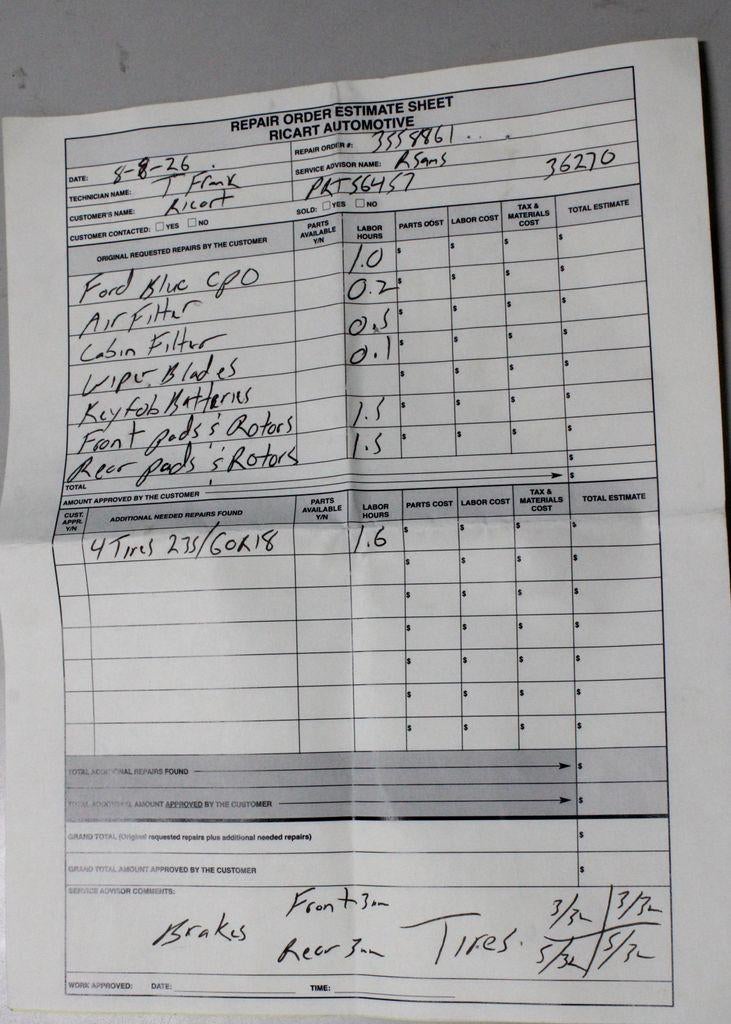 REPAIR ORDER ESTIMATE SHEET
RICART AUTOMOTIVE
DATE: 8-8-26 REPAIR ORDER #: 3558861
TECHNICIAN NAME: T Frank SERVICE ADVISOR NAME: RSams 36270
CUSTOMER'S NAME: Ricart PRT56457
CUSTOMER CONTACTED: YES NO SOLD: YES NO
ORIGINAL REQUESTED REPAIRS BY THE CUSTOMER PARTS AVAILABLE Y/N LABOR HOURS PARTS COST LABOR COST TAX & MATERIALS COST TOTAL ESTIMATE
Ford Blue CPO 1.0 $ $ $ $
Air Filter 0.2 $ $ $ $
Cabin Filter 0.5 $ $ $ $
Wiper Blades 0.1 $ $ $ $
Keyfob Batteries $ $ $ $
Front pads & Rotors 1.5 $ $ $ $
Rear pads & Rotors 1.5 $ $ $ $
TOTAL $
AMOUNT APPROVED BY THE CUSTOMER $
CUST. APPR. Y/N ADDITIONAL NEEDED REPAIRS FOUND PARTS AVAILABLE Y/N LABOR HOURS PARTS COST LABOR COST TAX & MATERIALS COST TOTAL ESTIMATE
4 Tires 235/60R18 1.6 $ $ $ $
$ $ $ $
$ $ $ $
$ $ $ $
$ $ $ $
$ $ $ $
$ $ $ $
TOTAL ADDITIONAL REPAIRS FOUND $
TOTAL ADDITIONAL AMOUNT APPROVED BY THE CUSTOMER $
GRAND TOTAL (Original requested repairs plus additional needed repairs) $
GRAND TOTAL AMOUNT APPROVED BY THE CUSTOMER $
SERVICE ADVISOR COMMENTS:
Brakes Front 3mm Rear 3mm
Tires. 3/32 3/32
5/32 5/32
WORK APPROVED: DATE: TIME: